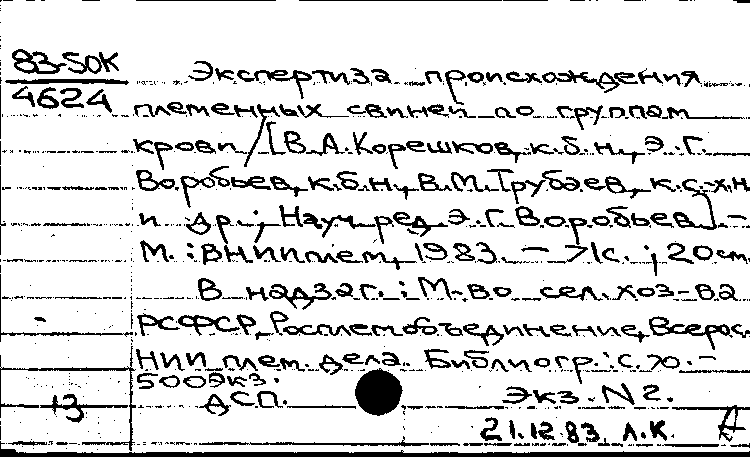 83-50К
4624
Экспертиза происхождения
племенных свиней по группам
крови / [В.А.Корешков, к.б.н., Э.Г.
Воробьев, к.б.н., В.М.Трубаев, к.с.-х.н
и др.; Науч.ред. Э.Г.Воробьев]. -
М.: ВНИИплем, 1983. - 71с.; 20см.
В надзаг.: М-во сел. хоз-ва
РСФСР, Росплемобъединение, Всерос.
НИИ плем. дела. Библиогр.: с. 70. -
500экз.
ДСП.
Экз. N2.
13
21.12.83. Л.К.